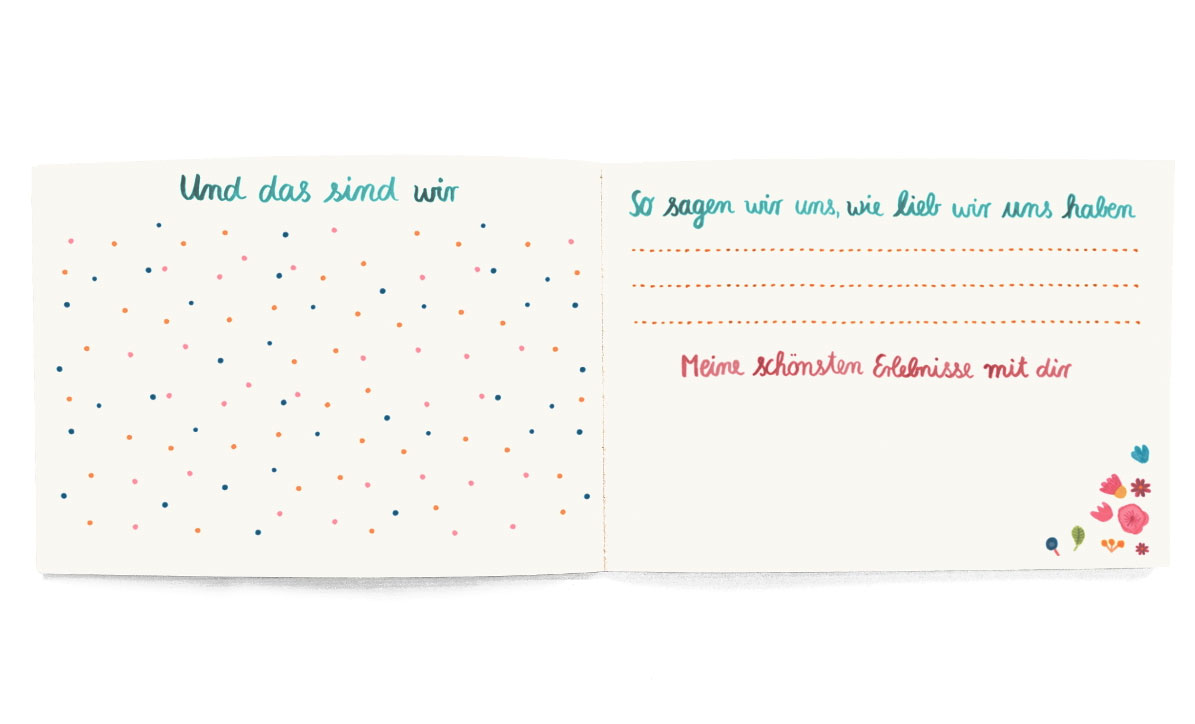 Und das sind wir
So sagen wir uns, wie lieb wir uns haben
Meine schönsten Erlebnisse mit dir